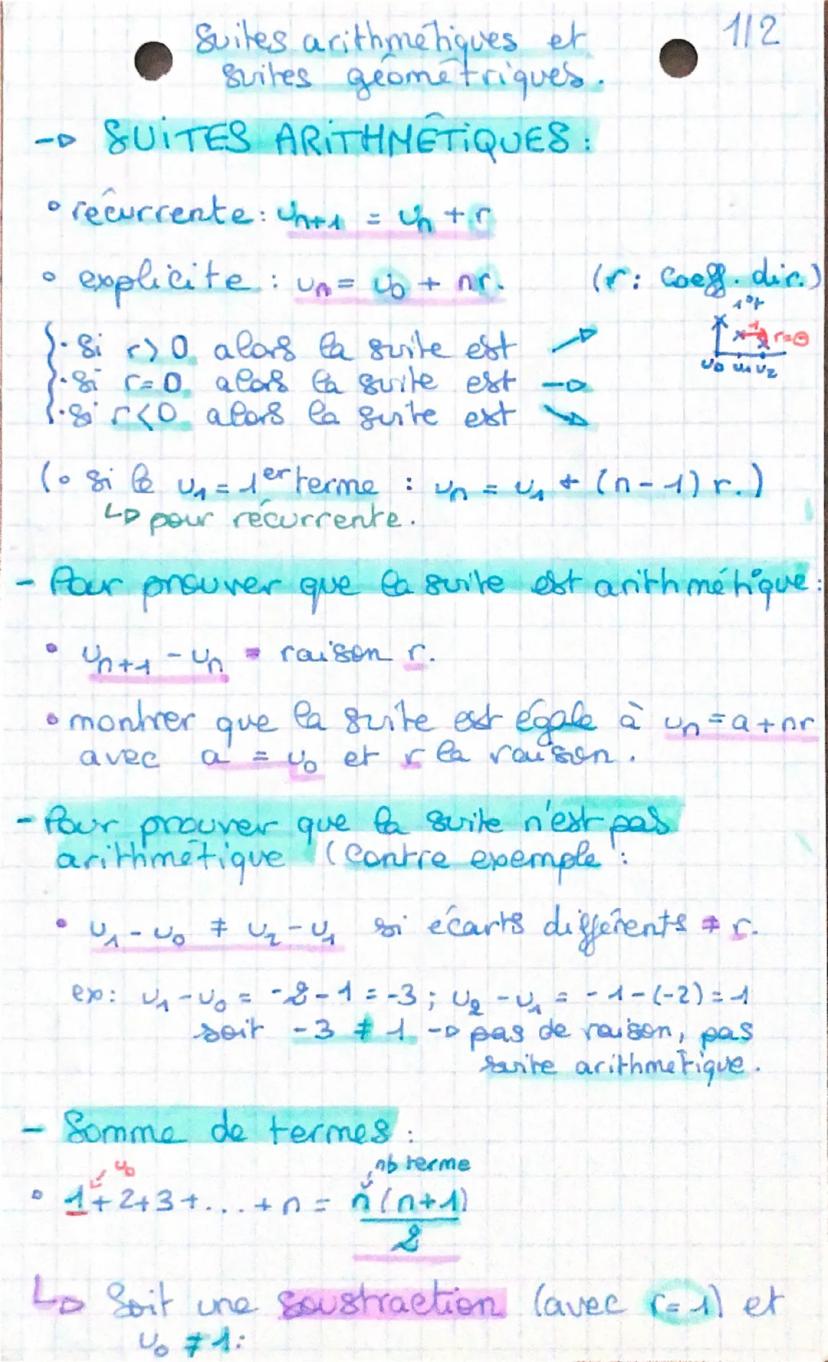 Suites arithmétiques et 1/2
suites géométriques.
→ SUITES ARITHMÉTIQUES :
• récurrente : uₙ₊₁ = uₙ + r
• explicite : uₙ = u₀ + nr. (r : coeff. dir.)
{ • si r > 0 alors la suite est ↗
{ • si r = 0 alors la suite est →
{ • si r < 0 alors la suite est ↘
r=⊖
u₀ u₁ u₂
(• si le u₁ = 1er terme : uₙ = u₁ + (n-1) r.)
↳ pour récurrente.
- Pour prouver que la suite est arithmétique :
• uₙ₊₁ - uₙ = raison r.
• montrer que la suite est égale à uₙ = a + nr
avec a = u₀ et r la raison.
- Pour prouver que la suite n'est pas
arithmétique (contre exemple :
• u₁ - u₀ ≠ u₂ - u₁ si écarts différents ≠ r.
ex : u₁ - u₀ = -2 - 1 = -3 ; u₂ - u₁ = -1 - (-2) = 1
soit -3 ≠ 1 → pas de raison, pas
suite arithmétique.
- Somme de termes :
u₀ nb terme
• 1 + 2 + 3 + ... + n = n(n+1)
2
↳ Soit une soustraction (avec r = 1) et
u₀ ≠ 1 :